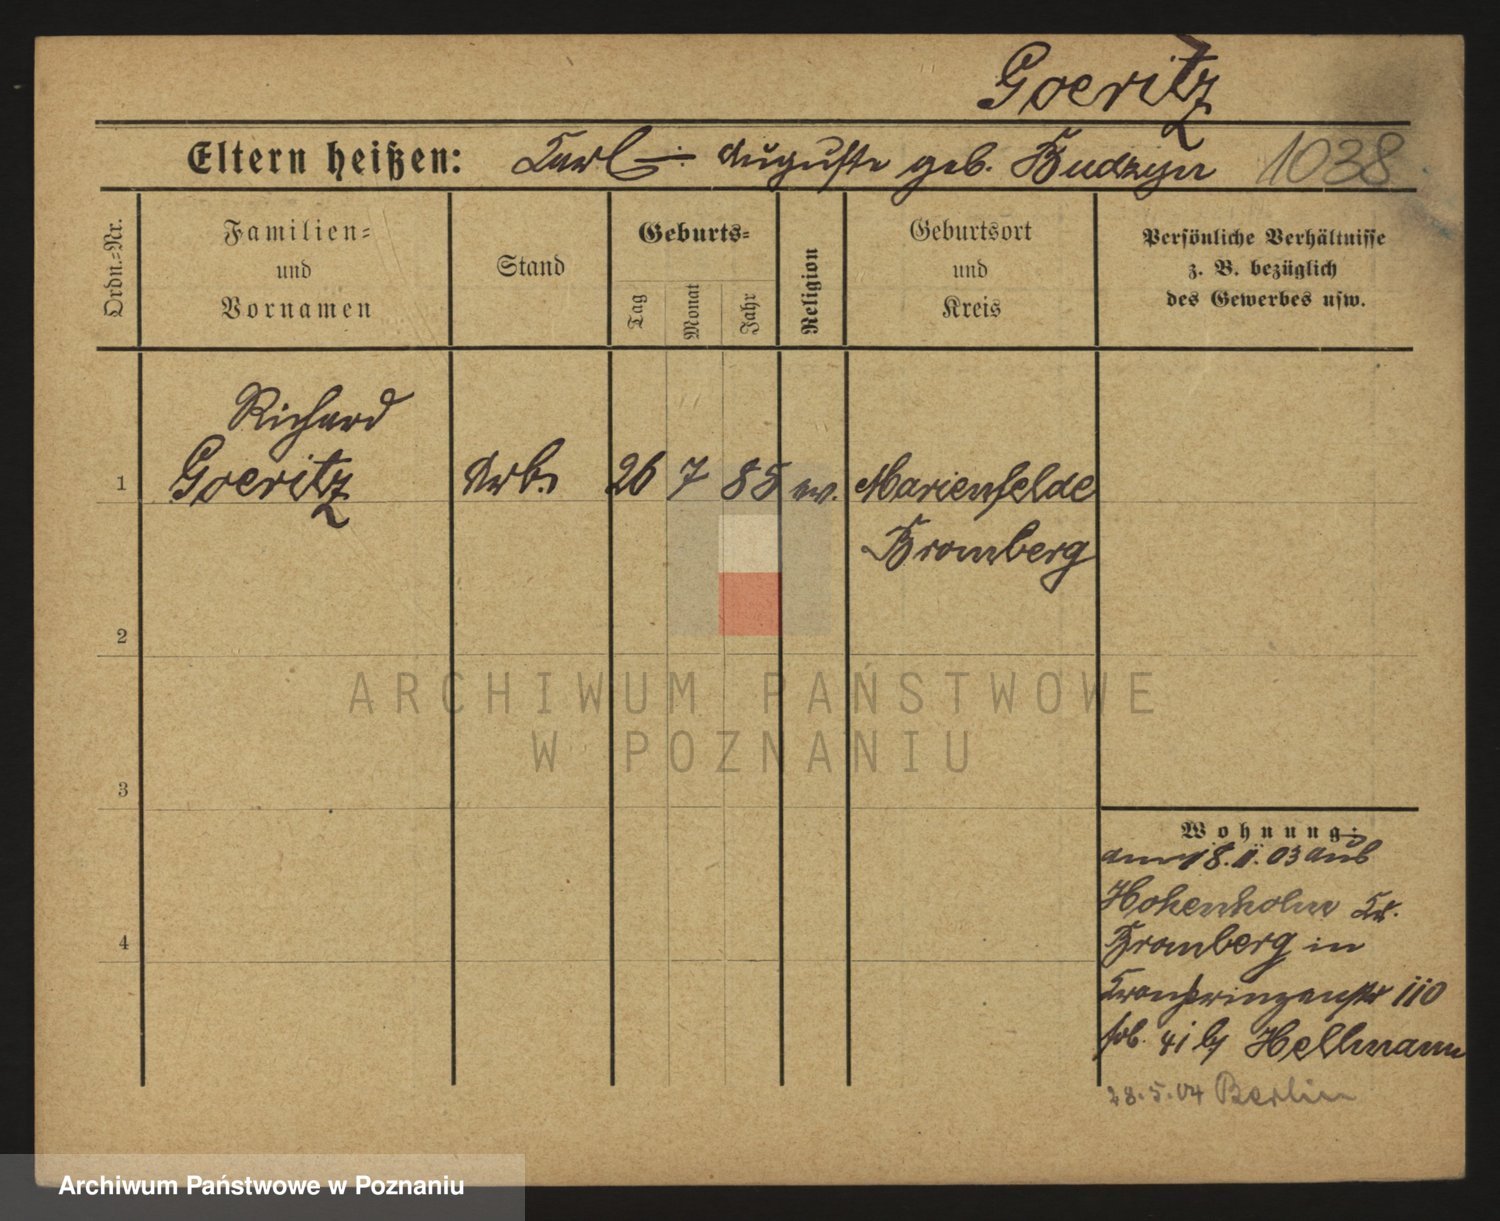 Goeritz
Eltern heißen: Carl – Auguste geb. Budzyn 1038
Ordn.=Nr.
Familien=
und
Vornamen
Stand
Geburts=
Tag
Monat
Jahr
Religion
Geburtsort
und
Kreis
Persönliche Verhältnisse
z. B. bezüglich
des Gewerbes usw.
Richard
1 Goeritz Arb. 26 7 85 ev. Marienfelde
Bromberg
2
3
4
ARCHIWUM PAŃSTWOWE
W POZNANIU
Wohnung:
am 18. II. 03 aus
Hohenholm Kr.
Bromberg in
Kronprinzenstr 110
bei Hellmann
28.5.04 Berlin
Archiwum Państwowe w Poznaniu